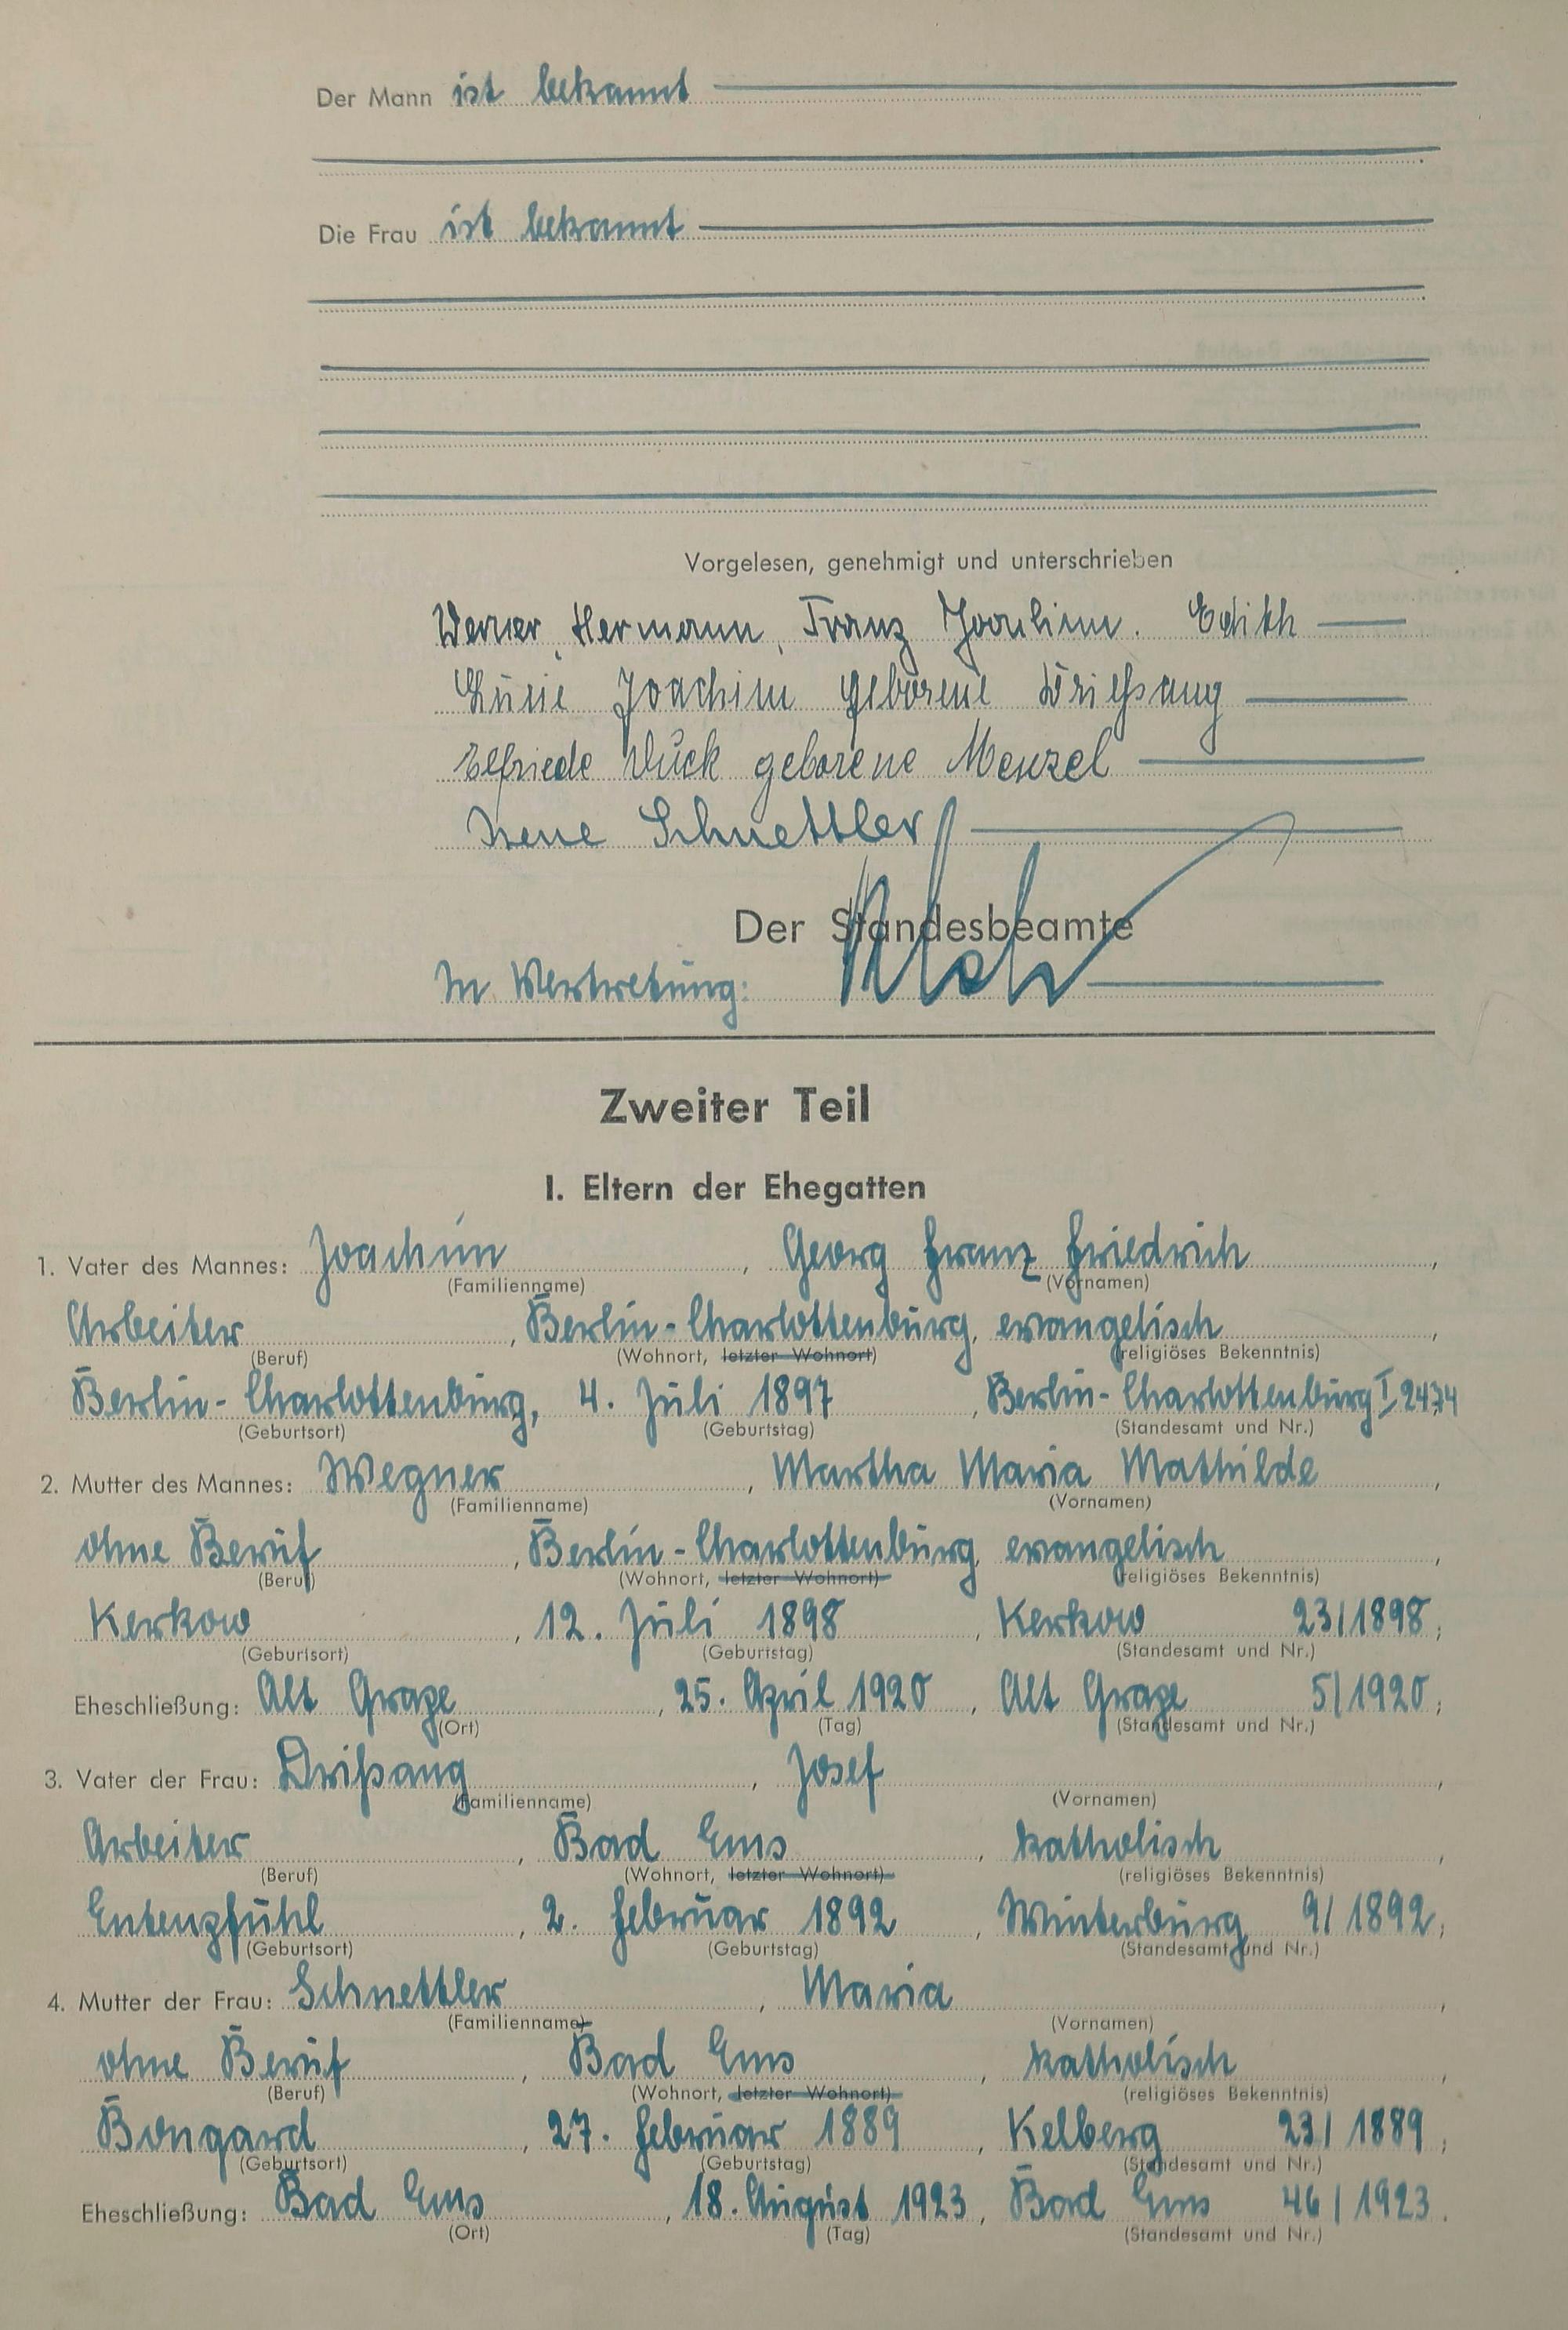 Der Mann ist bekannt
Die Frau ist bekannt
Vorgelesen, genehmigt und unterschrieben
Werner, Hermann, Franz Joachim. Edith
Joachim geborene
Elfriede geborene Menzel
Irene Schnettler
Der Standesbeamte
In Vertretung:
Zweiter Teil
I. Eltern der Ehegatten
1. Vater des Mannes: Joachim, Georg Franz Friedrich,
(Familienname) (Vornamen)
Arbeiter, Berlin-Charlottenburg, evangelisch,
(Beruf) (Wohnort, letzter Wohnort) (religiöses Bekenntnis)
Berlin-Charlottenburg, 4. Juli 1897, Berlin-Charlottenburg I, 2474
(Geburtsort) (Geburtstag) (Standesamt und Nr.)
2. Mutter des Mannes: Wegner, Martha Maria Mathilde,
(Familienname) (Vornamen)
ohne Beruf, Berlin-Charlottenburg, evangelisch,
(Beruf) (Wohnort, letzter Wohnort) (religiöses Bekenntnis)
Kerkow, 12. Juli 1898, Kerkow 23/1898;
(Geburtsort) (Geburtstag) (Standesamt und Nr.)
Eheschließung: Alt Grape, 25. April 1920, Alt Grape 5/1920;
(Ort) (Tag) (Standesamt und Nr.)
3. Vater der Frau: Drißang, Josef,
(Familienname) (Vornamen)
Arbeiter, Bad Ems, katholisch,
(Beruf) (Wohnort, letzter Wohnort) (religiöses Bekenntnis)
Entenpfuhl, 2. Februar 1892, Winterburg 9/1892;
(Geburtsort) (Geburtstag) (Standesamt und Nr.)
4. Mutter der Frau: Schnettler, Maria,
(Familienname) (Vornamen)
ohne Beruf, Bad Ems, katholisch,
(Beruf) (Wohnort, letzter Wohnort) (religiöses Bekenntnis)
Bongard, 27. Februar 1889, Kelberg 23/1889;
(Geburtsort) (Geburtstag) (Standesamt und Nr.)
Eheschließung: Bad Ems, 18. August 1923, Bad Ems 46/1923.
(Ort) (Tag) (Standesamt und Nr.)